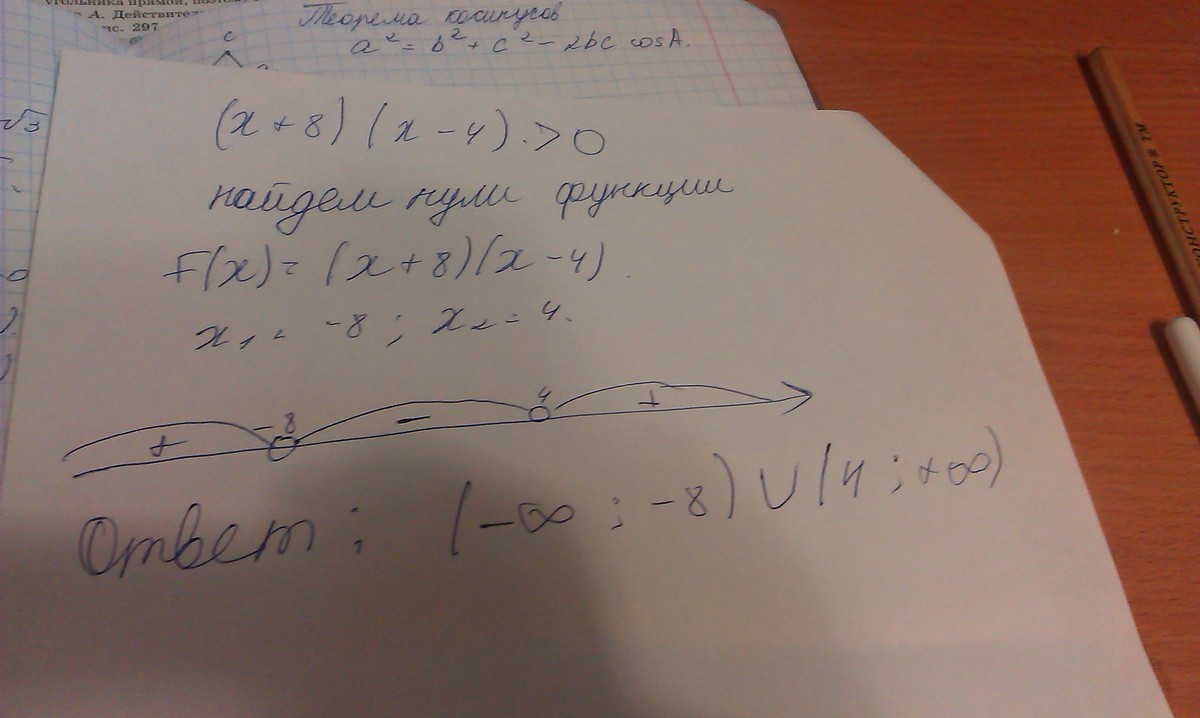 угольника прямой, поэтом
А. Действител
ис. 297
Теорема косинусов
a² = b² + c² - 2bc cosA.
c
√3
(x + 8) (x - 4) > 0
найдем нули функции
F(x) = (x + 8)(x - 4)
x₁ = -8 ; x₂ = 4.
+ -8 - 4 +
Ответ ; (-∞ ; -8) ∪ (4 ; +∞)